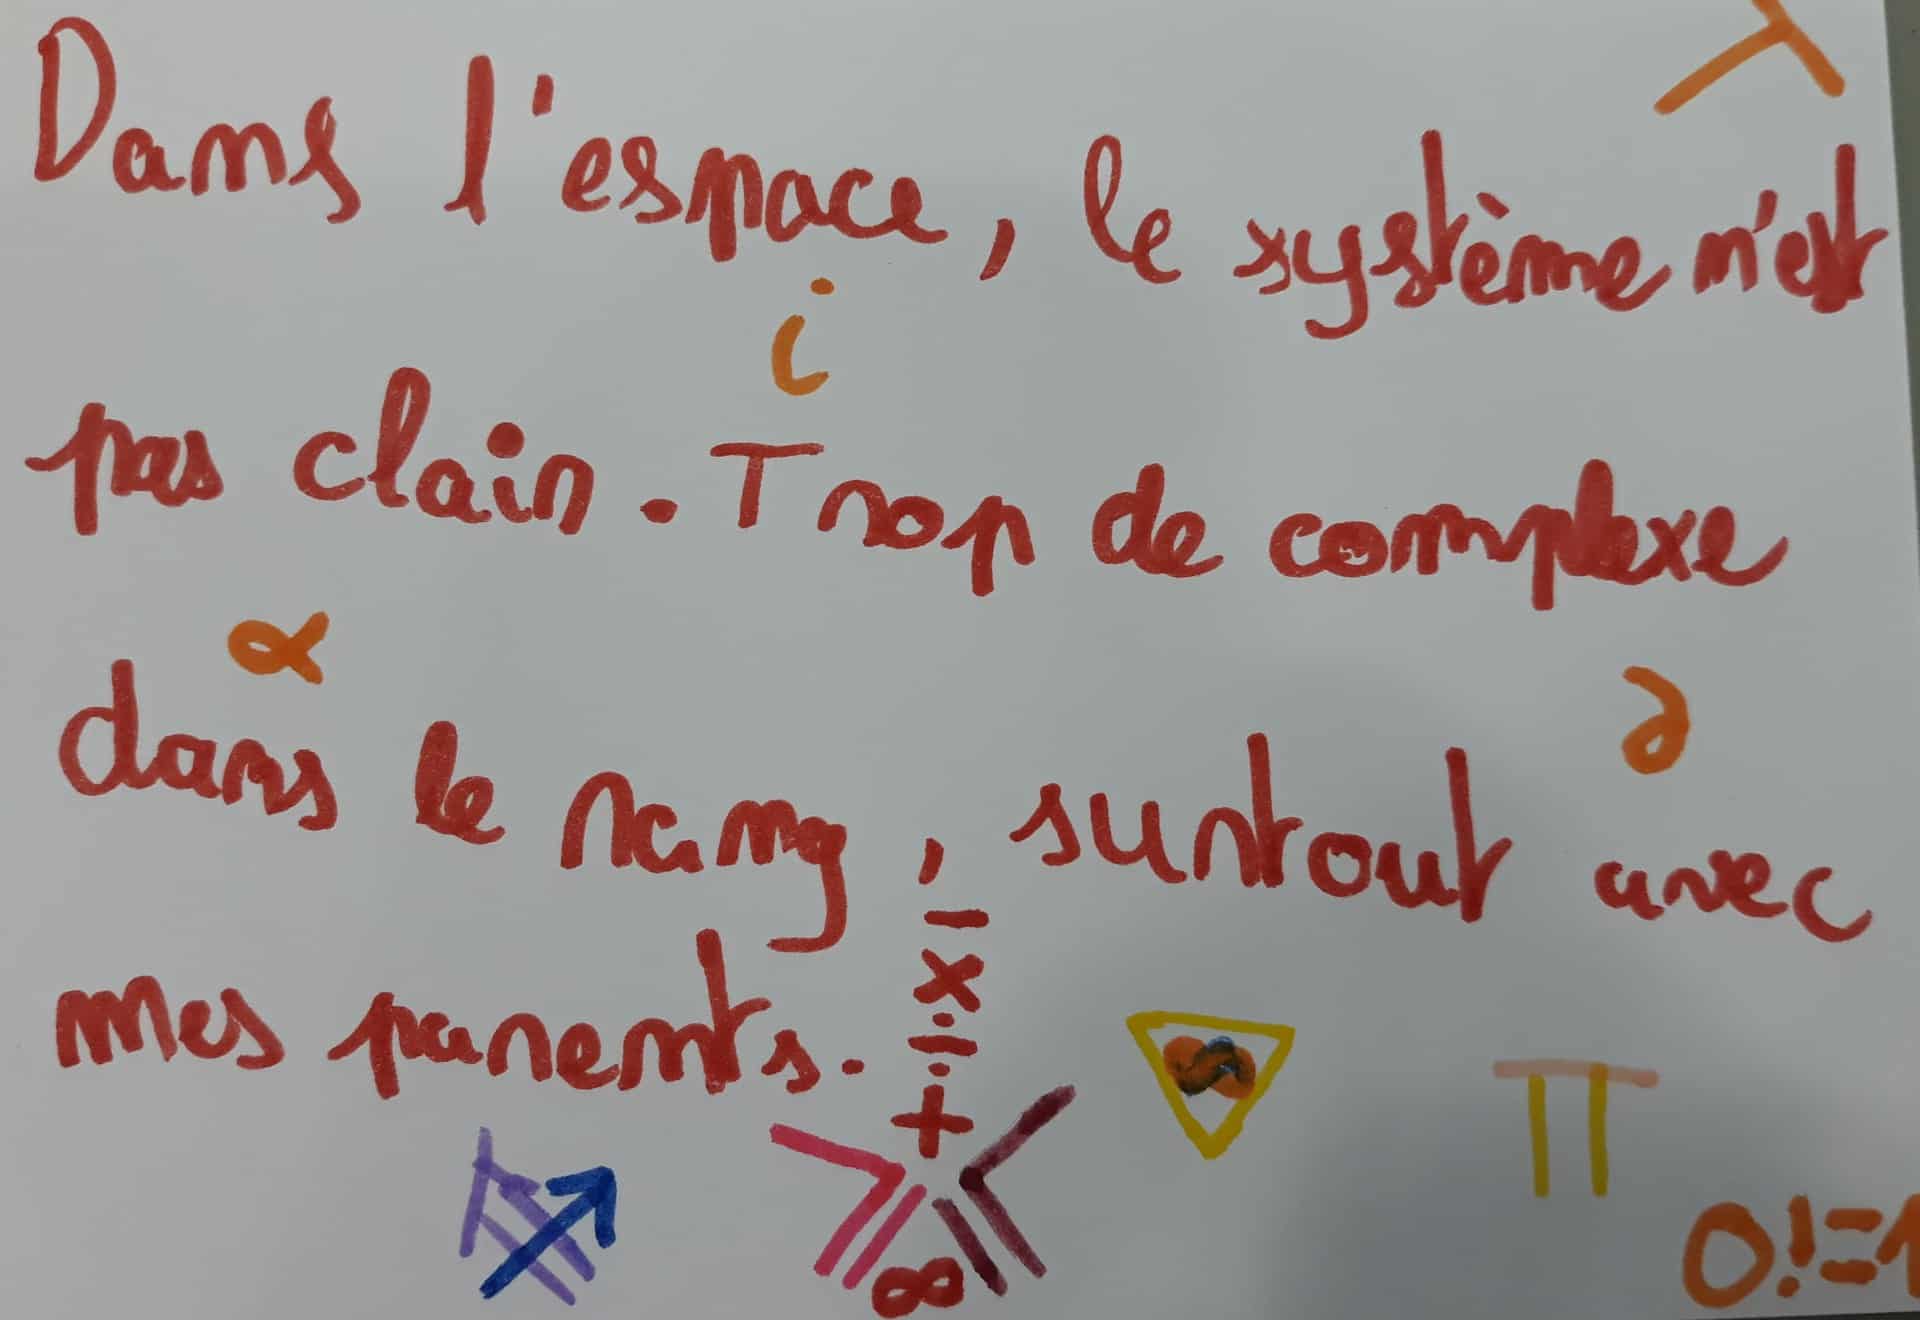 λ
Dans l'espace, le système n'est
i
pas clair. Trop de complexe
α ∂
dans le rang, surtout avec
mes parents. + ÷ × −
π
∞ 0!=1